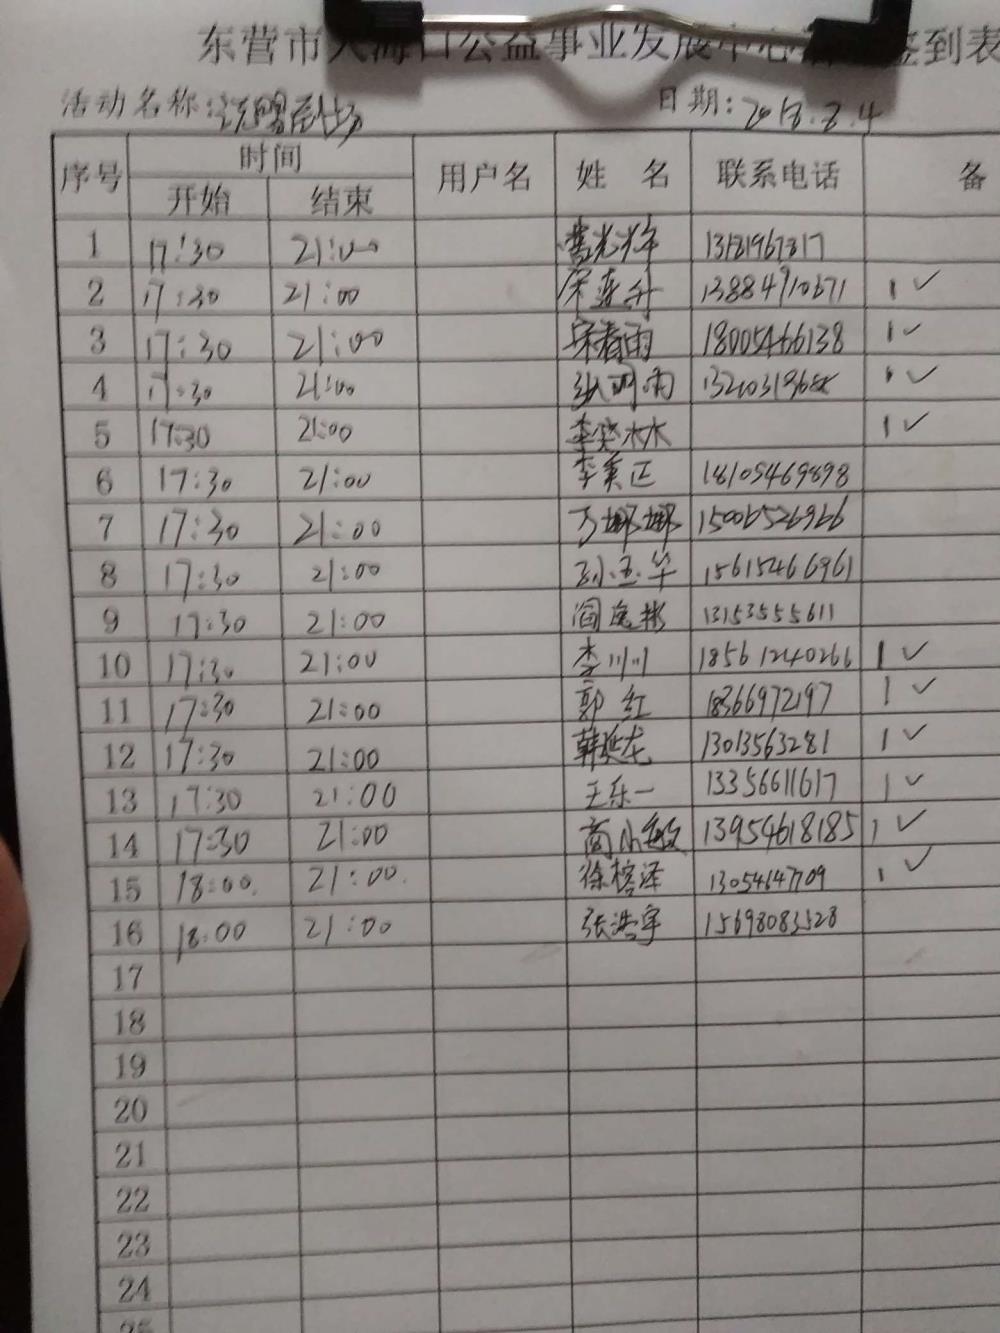 东营市大海口公益事业发展中心 签到表
活动名称: 日期:2018.8.4
序号 时间 用户名 姓 名 联系电话 备
开始 结束
1 17:30 21:00 13181967817
2 17:30 21:00 13884910671 1 ✓
3 17:30 21:00 宋春雨 18005466138 1 ✓
4 17:30 21:00 1 ✓
5 17:30 21:00 李晓林 1 ✓
6 17:30 21:00 李美正 18105469898
7 17:30 21:00 万娜娜 15006526966
8 17:30 21:00 孙玉华 15615466961
9 17:30 21:00 13153555611
10 17:30 21:00 李川川 18561240266 1 ✓
11 17:30 21:00 郭红 18366972197 1 ✓
12 17:30 21:00 韩延龙 13013563281 1 ✓
13 17:30 21:00 王乐一 13356611617 1 ✓
14 17:30 21:00 商小敏 13954618185 1 ✓
15 18:00. 21:00. 徐榕泽 13054647709 1 ✓
16 18:00 21:00 张浩宇 15698083528
17
18
19
20
21
22
23
24
25